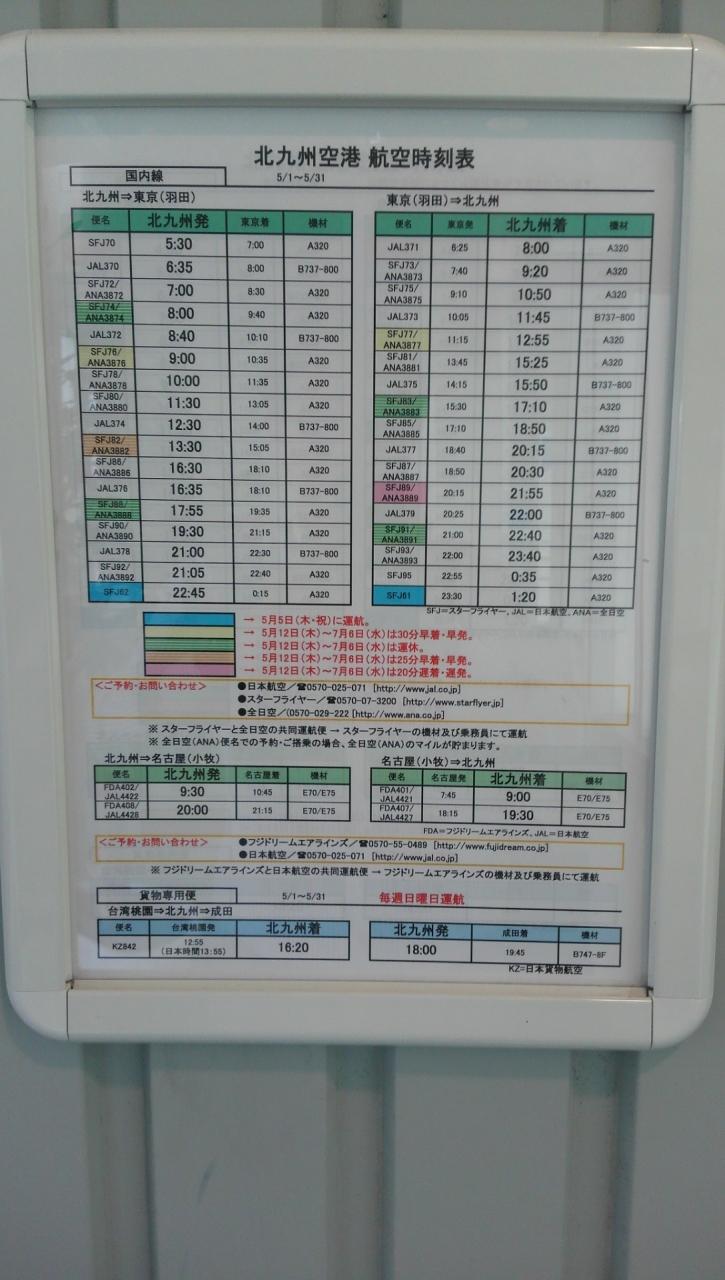 北九州空港 航空時刻表
国内線 5/1～5/31
北九州⇒東京(羽田)
便名 北九州発 東京着 機材
SFJ70 5:30 7:00 A320
JAL370 6:35 8:00 B737-800
SFJ72/ANA3872 7:00 8:30 A320
SFJ74/ANA3874 8:00 9:40 A320
JAL372 8:40 10:10 B737-800
SFJ76/ANA3876 9:00 10:35 A320
SFJ78/ANA3878 10:00 11:35 A320
SFJ80/ANA3880 11:30 13:05 A320
JAL374 12:30 14:00 B737-800
SFJ82/ANA3882 13:30 15:05 A320
SFJ86/ANA3886 16:30 18:10 A320
JAL376 16:35 18:10 B737-800
SFJ88/ANA3888 17:55 19:35 A320
SFJ90/ANA3890 19:30 21:15 A320
JAL378 21:00 22:30 B737-800
SFJ92/ANA3892 21:05 22:40 A320
SFJ62 22:45 0:15 A320
東京(羽田)⇒北九州
便名 東京発 北九州着 機材
JAL371 6:25 8:00 A320
SFJ73/ANA3873 7:40 9:20 A320
SFJ75/ANA3875 9:10 10:50 A320
JAL373 10:05 11:45 B737-800
SFJ77/ANA3877 11:15 12:55 A320
SFJ81/ANA3881 13:45 15:25 A320
JAL375 14:15 15:50 B737-800
SFJ83/ANA3883 15:30 17:10 A320
SFJ85/ANA3885 17:10 18:50 A320
JAL377 18:40 20:15 B737-800
SFJ87/ANA3887 18:50 20:30 A320
SFJ89/ANA3889 20:15 21:55 A320
JAL379 20:25 22:00 B737-800
SFJ91/ANA3891 21:00 22:40 A320
SFJ93/ANA3893 22:00 23:40 A320
SFJ95 22:55 0:35 A320
SFJ61 23:30 1:20 A320
SFJ=スターフライヤー、JAL=日本航空、ANA=全日空
→ 5月5日(木・祝)に運航。
→ 5月12日(木)～7月6日(水)は30分早着・早発。
→ 5月12日(木)～7月6日(水)は運休。
→ 5月12日(木)～7月6日(水)は25分早着・早発。
→ 5月12日(木)～7月6日(水)は20分遅着・遅発。
<ご予約・お問い合わせ> ●日本航空/☎0570-025-071 [http://www.jal.co.jp]
●スターフライヤー/☎0570-07-3200 [http://www.starflyer.jp]
●全日空/(0570-029-222 [http://www.ana.co.jp]
※ スターフライヤーと全日空の共同運航便 → スターフライヤーの機材及び乗務員にて運航
※ 全日空(ANA)便名での予約・ご搭乗の場合、全日空(ANA)のマイルが貯まります。
北九州⇒名古屋(小牧)
便名 北九州発 名古屋着 機材
FDA402/JAL4422 9:30 10:45 E70/E75
FDA408/JAL4428 20:00 21:15 E70/E75
名古屋(小牧)⇒北九州
便名 名古屋発 北九州着 機材
FDA401/JAL4421 7:45 9:00 E70/E75
FDA407/JAL4427 18:15 19:30 E70/E75
FDA=フジドリームエアラインズ、JAL=日本航空
<ご予約・お問い合わせ> ●フジドリームエアラインズ/☎0570-55-0489 [http://www.fujidream.co.jp]
●日本航空/☎0570-025-071 [http://www.jal.co.jp]
※ フジドリームエアラインズと日本航空の共同運航便 → フジドリームエアラインズの機材及び乗務員にて運航
貨物専用便 5/1～5/31 毎週日曜日運航
台湾桃園⇒北九州⇒成田
便名 台湾桃園発 北九州着
KZ842 12:55 (日本時間13:55) 16:20
北九州発 成田着 機材
18:00 19:45 B747-8F
KZ=日本貨物航空